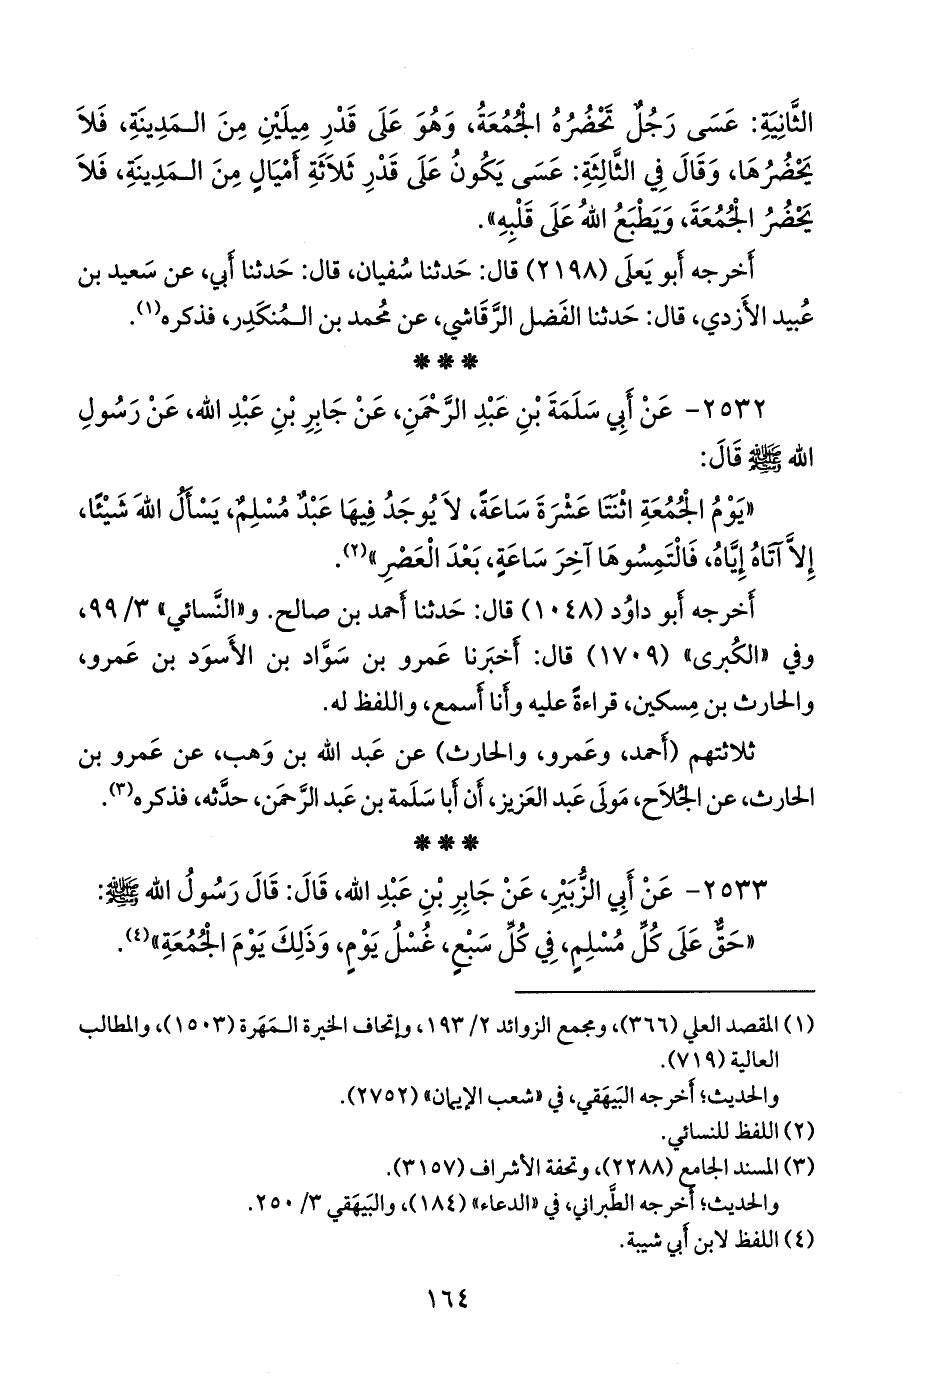 الثَّانِيَةِ: عَسَى رَجُلٌ تَحْضُرُهُ الْجُمُعَةُ، وَهُوَ عَلَى قَدْرِ مِيلَيْنِ مِنَ الـمَدِينَةِ، فَلَا
يَحْضُرُهَا، وَقَالَ فِي الثَّالِثَةِ: عَسَى يَكُونُ عَلَى قَدْرِ ثَلَاثَةِ أَمْيَالٍ مِنَ الـمَدِينَةِ، فَلَا
يَحْضُرُ الْجُمُعَةَ، وَيَطْبَعُ اللهُ عَلَى قَلْبِهِ».
أخرجه أبو يَعلَى (٢١٩٨) قال: حَدثنا سُفيان، قال: حَدثنا أبي، عن سَعيد بن
عُبيد الأَزدي، قال: حَدثنا الفَضل الرَّقاشي، عن مُحمد بن الـمُنكَدِر، فذكره(١).
***
٢٥٣٢- عَنْ أَبِي سَلَمَةَ بْنِ عَبْدِ الرَّحْمَنِ، عَنْ جَابِرِ بْنِ عَبْدِ الله، عَنْ رَسُولِ
الله ﷺ قَالَ:
«يَوْمُ الْجُمُعَةِ اثْنَتَا عَشْرَةَ سَاعَةً، لَا يُوجَدُ فِيهَا عَبْدٌ مُسْلِمٌ، يَسْأَلُ اللهَ شَيْئًا،
إِلاَّ آتَاهُ إِيَّاهُ، فَالْتَمِسُوهَا آخِرَ سَاعَةٍ، بَعْدَ الْعَصْرِ»(٢).
أخرجه أبو داوُد (١٠٤٨) قال: حَدثنا أحمد بن صالح. و«النَّسائي» ٣/ ٩٩،
وفي «الكُبرى» (١٧٠٩) قال: أَخبَرنا عَمرو بن سَوَّاد بن الأَسوَد بن عَمرو،
والحارث بن مِسكين، قراءةً عليه وأنا أَسمع، واللفظ له.
ثلاثتهم (أَحمد، وعَمرو، والحارث) عن عَبد الله بن وَهب، عن عَمرو بن
الحارث، عن الجُلَاح، مَولَى عَبد العَزيز، أن أَبا سَلَمة بن عَبد الرَّحمَن، حدَّثه، فذكره(٣).
***
٢٥٣٣- عَنْ أَبِي الزُّبَيْرِ، عَنْ جَابِرِ بْنِ عَبْدِ الله، قَالَ: قَالَ رَسُولُ الله ﷺ:
«حَقٌّ عَلَى كُلِّ مُسْلِمٍ، فِي كُلِّ سَبْعٍ، غُسْلُ يَوْمٍ، وَذَلِكَ يَوْمَ الْجُمُعَةِ»(٤).
(١) المقصد العلي (٣٦٦)، ومجمع الزوائد ٢/ ١٩٣، وإتحاف الخيرة الـمَهَرة (١٥٠٣)، والمطالب
العالية (٧١٩).
والحديث؛ أخرجه البَيهَقي، في «شعب الإيمان» (٢٧٥٢).
(٢) اللفظ للنسائي.
(٣) المسند الجامع (٢٢٨٨)، وتحفة الأشراف (٣١٥٧).
والحديث؛ أخرجه الطَّبراني، في «الدعاء» (١٨٤)، والبَيهَقي ٣/ ٢٥٠.
(٤) اللفظ لابن أبي شيبة.
١٦٤